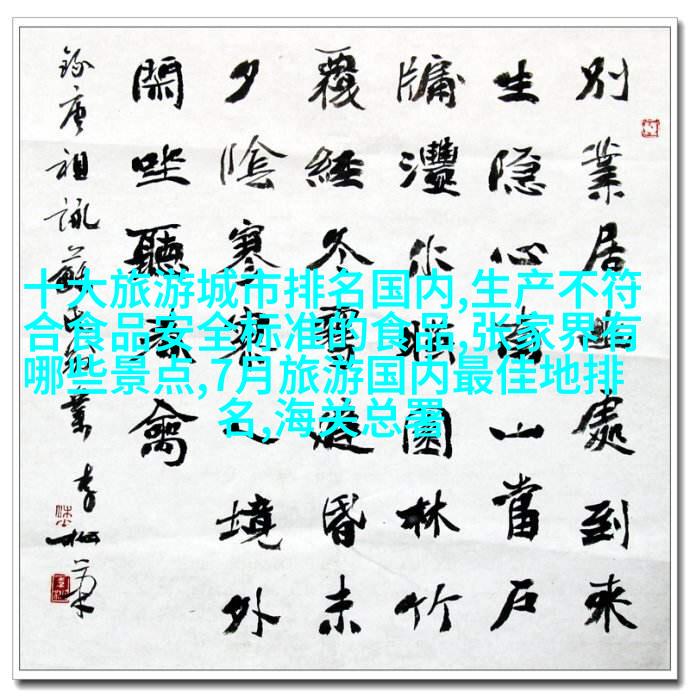 別業居幽處到來
生隐心南山當戶
牖灃水映園林竹
覆經冬雪庭昏未
夕陰寥寥人境外
閑坐聽春禽
錄唐祖詠蘇氏别業
十大旅游城市排名国内,生产不符
合食品安全标准的食品,张家界有
哪些景点,7月旅游国内最佳地排
名,海关总署